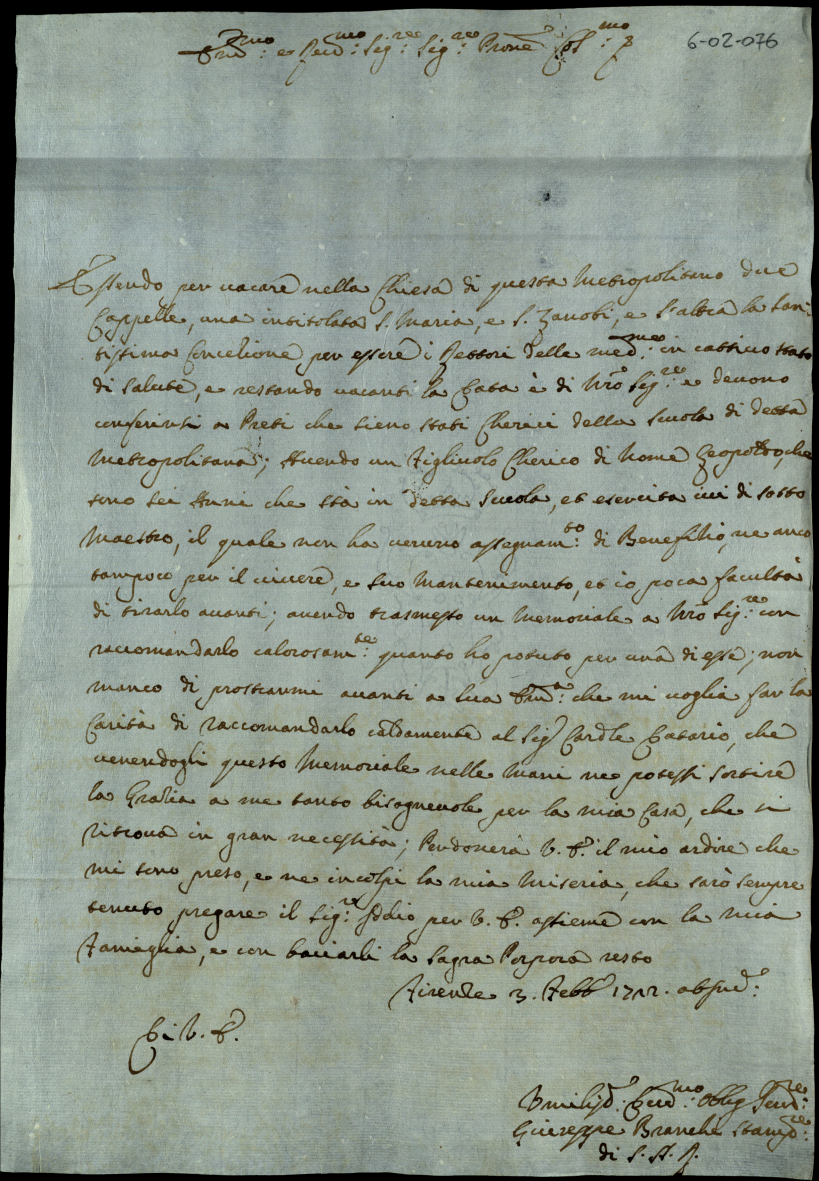 Em.mo e Reu.mo Sig.re Sig.re Prone Col.mo
6-02-076
Essendo per uacare nella Chiesa di questa Metropolitana due
Cappelle, una intitolata S. Maria, e S. Zanobi, e l'altra la San:
tissima Concezione per essere i Rettori delle med.me in cattiuo stato
di salute, e restando uacanti la Data è di Nro Sig.re e deuono
conferirsi a Preti che sieno stati Cherici della Scuola di detta
Metropolitana; Auendo un Figliuolo Cherico di Nome Leopoldo, che
sono sei Anni che stà in detta Scuola, et esercita iui di sotto
Maestro, il quale non ha ueruno assegnam.to di Benefizio, ne anco
tampoco per il uiuere, e suo mantenimento, et io poca facultà
di tirarlo auanti; auendo trasmesso un Memoriale a Nro Sig.re con
raccomandarlo calorosam.te quanto ho potuto per una di esse; non
manco di prostrarmi auanti a Sua Em.a che mi uoglia far la
Carità di raccomandarlo caldamente al Sig.r Cardle Datario, che
uenendogli questo Memoriale nelle mani ne potessi sortire
la Grazia a me tanto bisogneuole per la mia Casa, che si
ritroua in gran necessità; Perdonerà V. E. il mio ardire che
mi sono preso, e ne incolpi la mia Miseria, che sarò sempre
tenuto pregare il Sig.re Iddio per V. E. assieme con la mia
Fameglia, e con baciarli la Sagra Porpora resto
Firenze 3. Febb.o 1712. ab Inc.e
Di V. E.
Umiliss.o Deu.mo Obblig Seru.re
Giuseppe Branchi Stamp.re
di S. A. R.